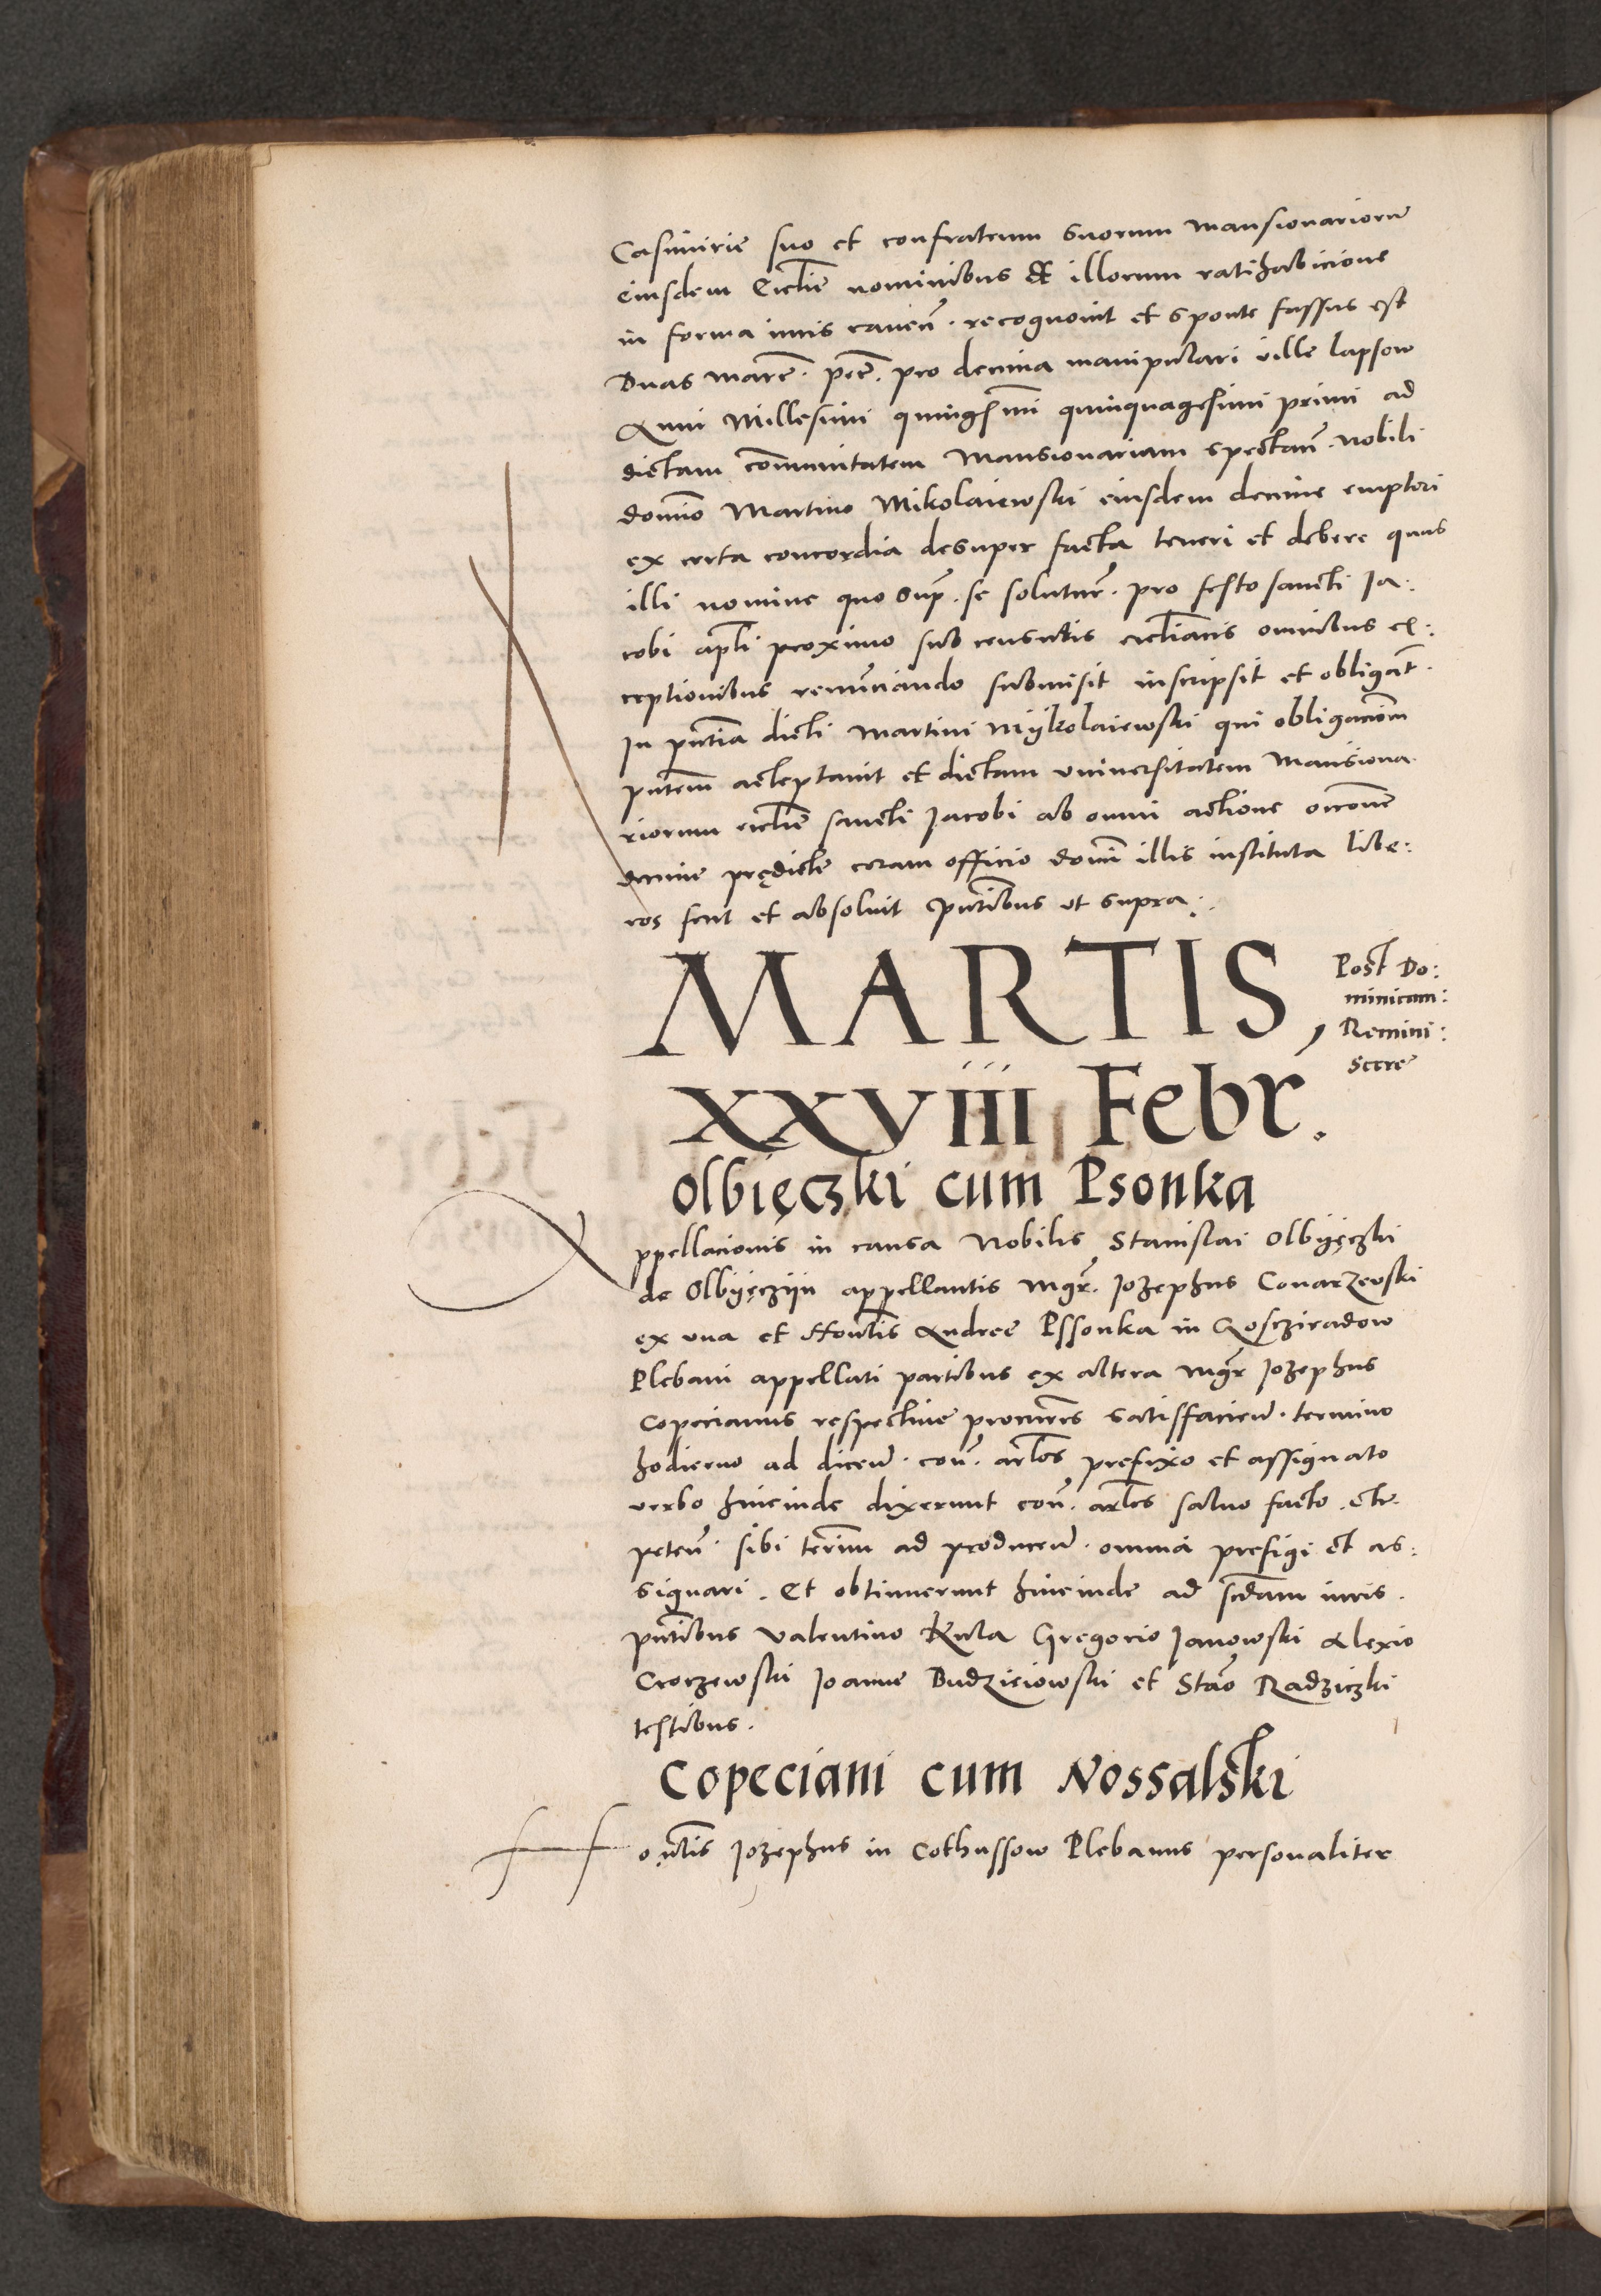 Casimirie suo et confratrum suorum mansionariorum
eiusdem Ecclie nominibus & illorum ratihabicione
in forma iuris caven̄. recognovit et sponte fassus est
Duas marc̄. pec̄. pro decima manipulari ville Lapsow
Anni Millesimi quingmi quinquagesimi primi ad
dictam communitatem Mansionariam spectan̄. nobili
domino Martino Mikolaiewski eiusdem decime emptori
ex certa concordia desuper facta teneri et debere quas
illi nomine quo sup̄. se soluturm̄. pro festo sancti Ja:
cobi apli proximo sub censuris eccliacis omnibus ex:
ceptionibus renunciando submisit inscripsit et obligavt.
In pntia dicti Martini Mÿkolaiewski qui obligacionem
pntem acceptavit et dictam universitatem Mansiona
riorum ecclie sancti Jacobi ab omni actione occone
decime prędicte coram officio domi illis instituta libe:
ros fecit et absolvit pntibus ut supra:.
MARTIS,
Post Do:
minicam:
Remini:
scere
XXVIII Febr.
Olbięczki cum Psonka
Appellacionis in causa Nobilis Stanislai Olbÿęczki
de Olbÿęczÿn appellantis mgr̄. Jozephus Conarzewski
ex una et Hontis Andree Pssonka in Goscziradow
Plebani appellati partibus ex altera mgr̄ Jozephus
Copecianus respective procurres satisfacien̄. termino
hodierno ad dicen̄. con̄. arlos prefixo et assignato
verbo hincinde dixerunt con̄. arlos salvo facto. etc.
peten̄. sibi terium ad producen̄. omnia prefigi et as:
signari. Et obtinuerunt hincinde ad scdam iuris.
pntibus Valentino Kula Gregorio Janowski Alexio
Croczewski Joanne Budziciowski et Stao Radziczki
testibus.
Copeciani cum Nossalski
Hontis Jozephus in Cothussow Plebanus personaliter